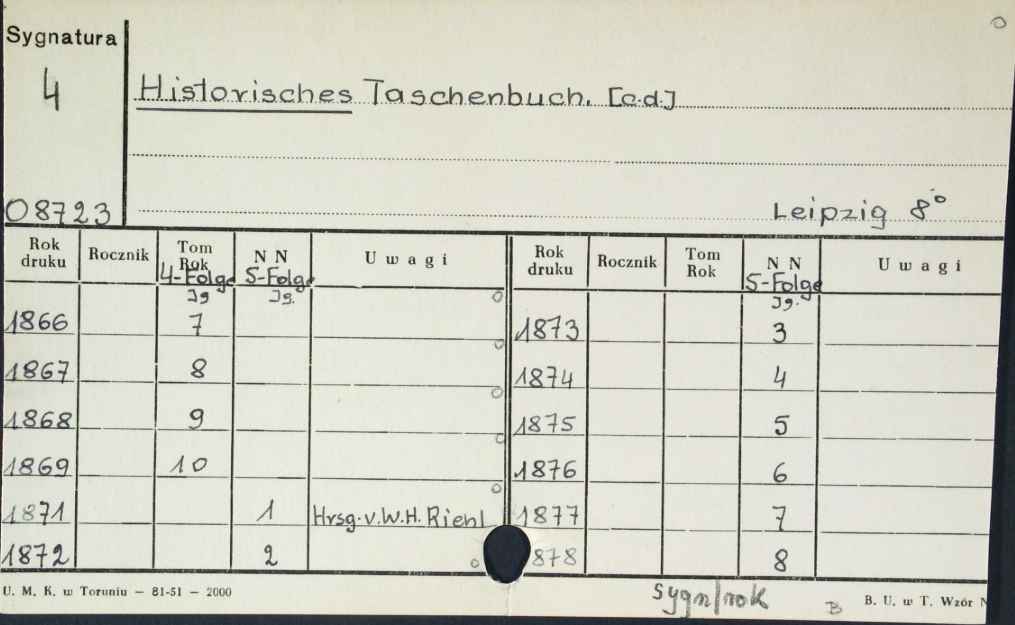 Sygnatura
4
Historisches Taschenbuch. [c.d.]
08723
Leipzig 8°
Rok druku Rocznik Tom Rok N N U w a g i Rok druku Rocznik Tom Rok N N U w a g i
4-Folge 5-Folge 5-Folge
Jg Jg. Jg.
1866 7 1873 3
1867 8 1874 4
1868 9 1875 5
1869 10 1876 6
1871 1 Hrsg. v. W. H. Riehl 1877 7
1872 2 878 8
U. M. K. w Toruniu — 81-51 — 2000
Sygn/rok
B
B. U. w T. Wzór